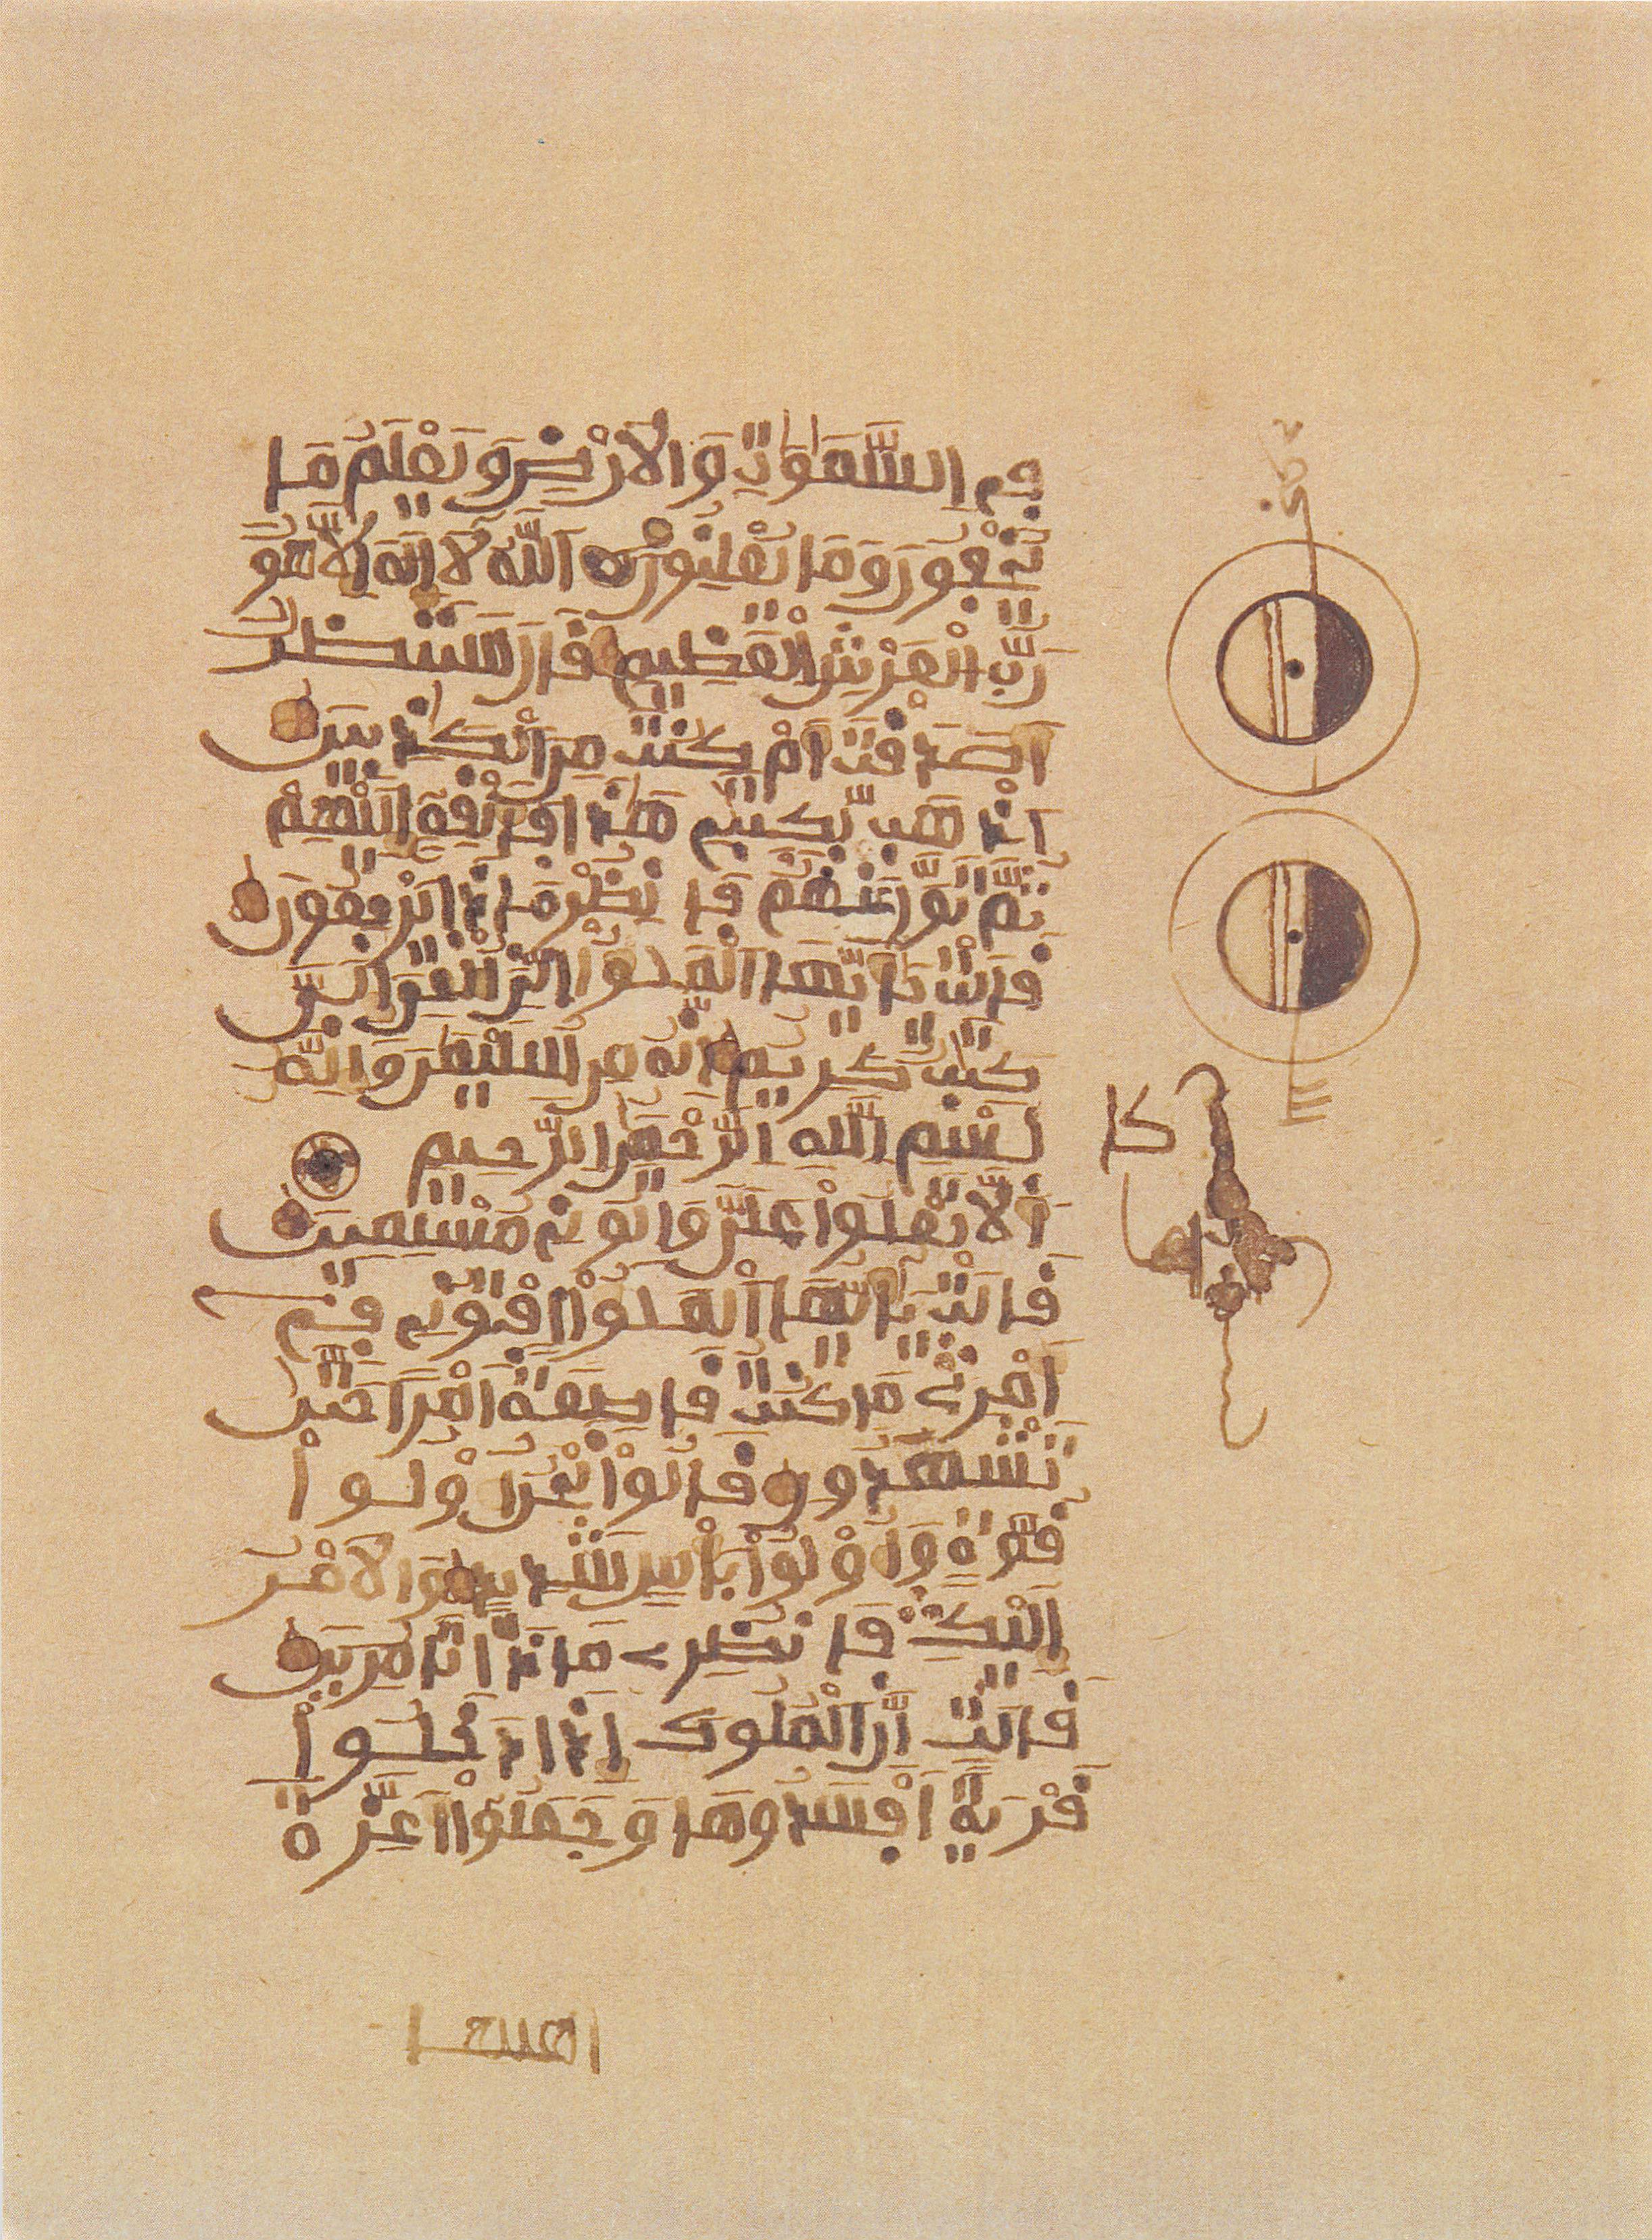 فِي اِلسَّمَٰوَٰتِ وَالَارْضِ وَيَعْلَمُ مَا
يُخْفُونَ وَمَا يُعْلِنُونَ اَللَّهُ لَا إِلَٰهَ إِلَّا هُوَ
رَبُّ اُلْعَرْشِ اِلْعَظِيمِ قَالَ سَنَنظُرُ
أَصَدَقْتَ أَمْ كُنتَ مِنَ اَلْكَٰذِبِينَ
اَذْهَب بِّكِتَٰبِي هَٰذَا فَأَلْقِهِ إِلَيْهِمْ
ثُمَّ تَوَلَّ عَنْهُمْ فَانظُرْ مَاذَا يَرْجِعُونَ
قَالَتْ يَٰأَيُّهَا اَلْمَلَؤُاْ اِنِّيَ أُلْقِيَ إِلَيَّ
كِتَٰبٌ كَرِيمٌ اِنَّهُ مِن سُلَيْمَٰنَ وَإِنَّهُ
بِسْمِ اِللَّهِ اِلرَّحْمَٰنِ اِلرَّحِيمِ
أَلَّا تَعْلُواْ عَلَيَّ وَاتُونِي مُسْلِمِينَ
قَالَتْ يَٰأَيُّهَا اَلْمَلَؤُاْ اَفْتُونِي فِي
أَمْرِي مَا كُنتُ قَاطِعَةً أَمْراً حَتَّىٰ
تَشْهَدُونِ قَالُواْ نَحْنُ أُوْلُواْ
قُوَّةٍ وَأُوْلُواْ بَأْسٍ شَدِيدٍ وَالَامْرُ
إِلَيْكِ فَانظُرِي مَاذَا تَامُرِينَ
قَالَتِ اِنَّ اَلْمُلُوكَ إِذَا دَخَلُواْ
قَرْيَةً اَفْسَدُوهَا وَجَعَلُواْ أَعِزَّةَ
اهلها